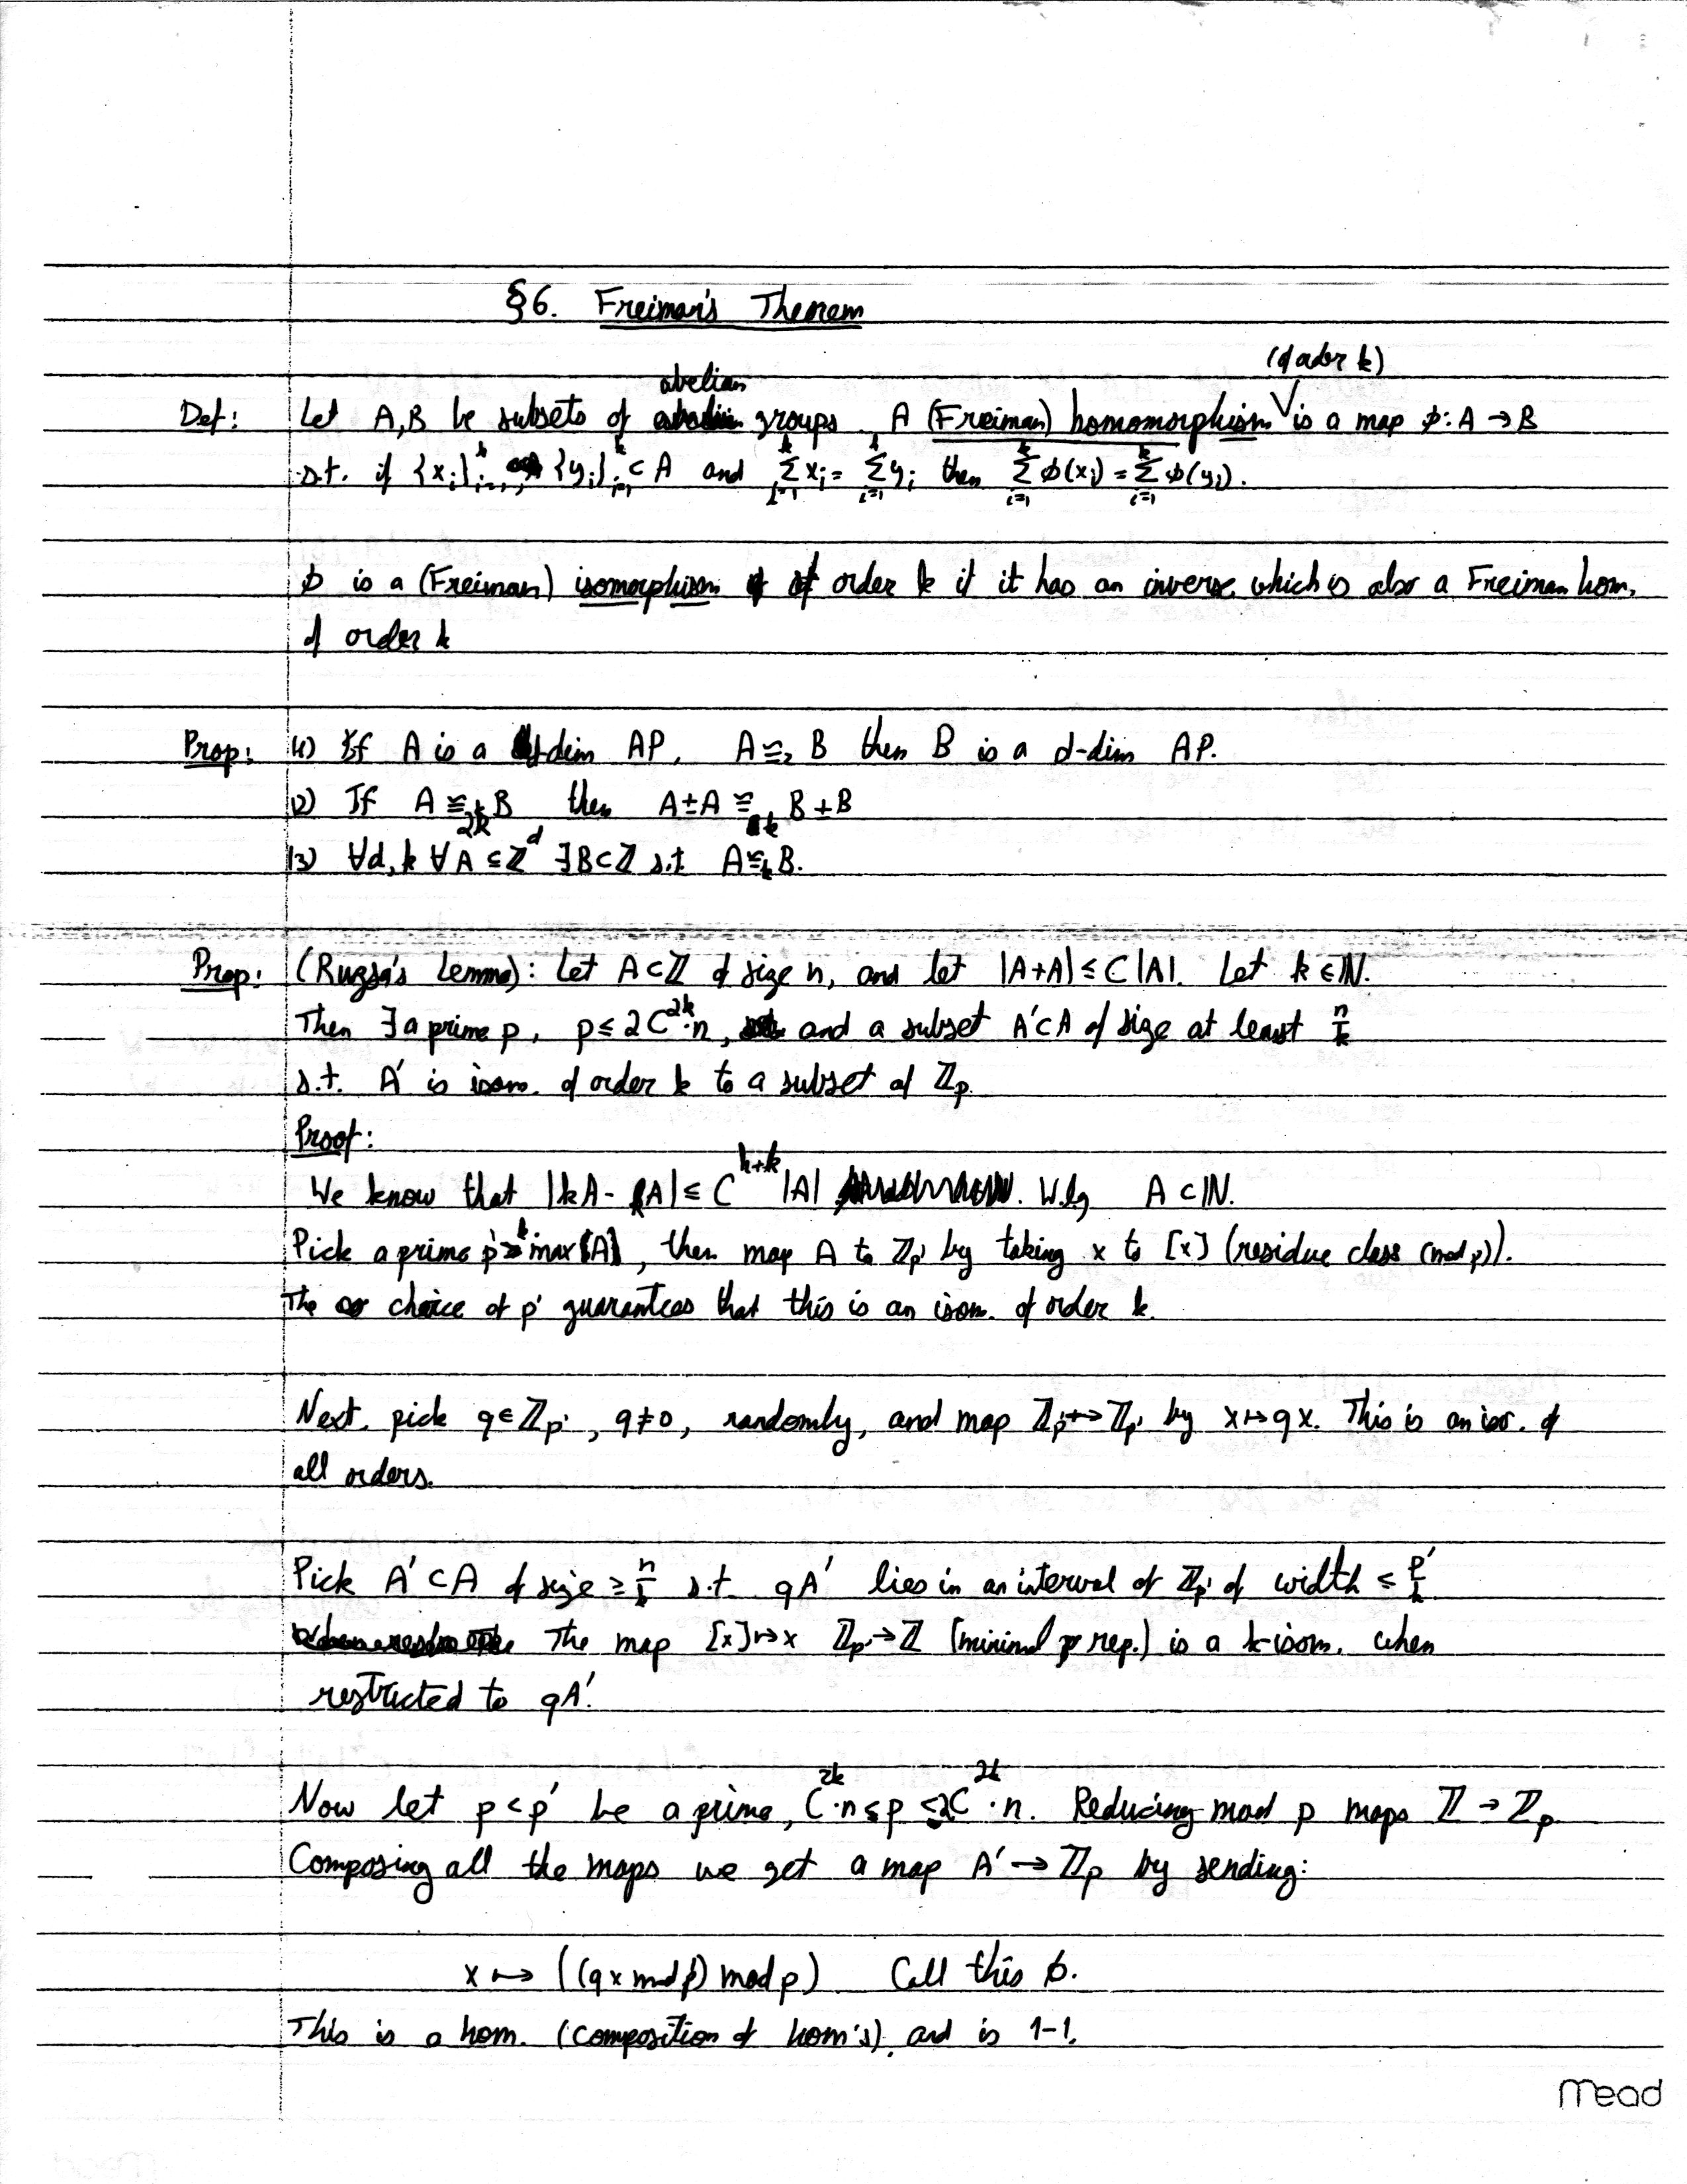 §6. Freiman's Theorem
(of order k)
abelian
Def: Let A,B be subsets of groups. A (Freiman) homomorphism is a map φ: A → B
s.t. if {x_i}_{i=1}^k, {y_i}_{i=1}^k ⊂ A and ∑_{i=1}^k x_i = ∑_{i=1}^k y_i then ∑_{i=1}^k φ(x_i) = ∑_{i=1}^k φ(y_i).
φ is a (Freiman) isomorphism of order k if it has an inverse which is also a Freiman hom.
of order k
Prop: (1) If A is a d-dim AP, A ≅_2 B then B is a d-dim AP.
(2) If A ≅_{2k} B then A±A ≅_k B±B
(3) ∀d,k ∀A ⊆ ℤ^d ∃B⊂ℤ s.t. A ≅_k B.
Prop: (Ruzsa's Lemma): Let A⊂ℤ of size n, and let |A+A| ≤ C|A|. Let k∈ℕ.
Then ∃ a prime p, p ≤ 2C^{2k}·n, and a subset A'⊂A of size at least n/k
s.t. A' is isom. of order k to a subset of ℤ_p.
Proof:
We know that |kA - lA| ≤ C^{k+k} |A|. W.l.g. A⊂ℕ.
Pick a prime p' > k max(A), then map A to ℤ_p' by taking x to [x] (residue class (mod p)).
The choice of p' guarantees that this is an isom. of order k.
Next, pick q∈ℤ_p', q≠0, randomly, and map ℤ_p' ↔ ℤ_p' by x↦qx. This is an iso. of
all orders.
Pick A'⊂A of size ≥ n/k s.t. qA' lies in an interval of ℤ_p' of width ≤ p'/k
The map [x]↦x ℤ_p'→ℤ (minimal rep.) is a k-isom. when
restricted to qA'.
Now let p<p' be a prime, C^{2k}·n ≤ p ≤ 2C^{2k}·n. Reducing mod p maps ℤ→ℤ_p.
Composing all the maps we get a map A'→ℤ_p by sending:
x ↦ ((qx mod p') mod p) Call this φ.
This is a hom. (composition of hom's), and is 1-1.
Mead